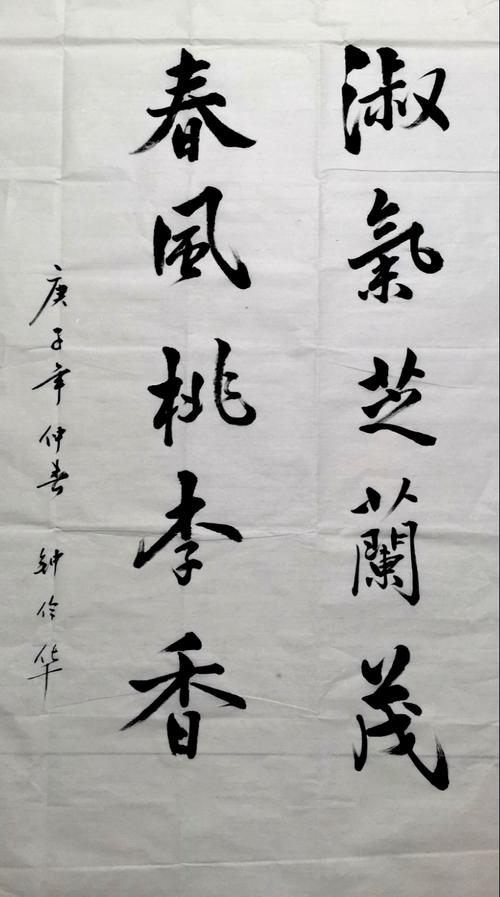 淑氣芝蘭茂
春風桃李香
庚子年仲春 钟伶华